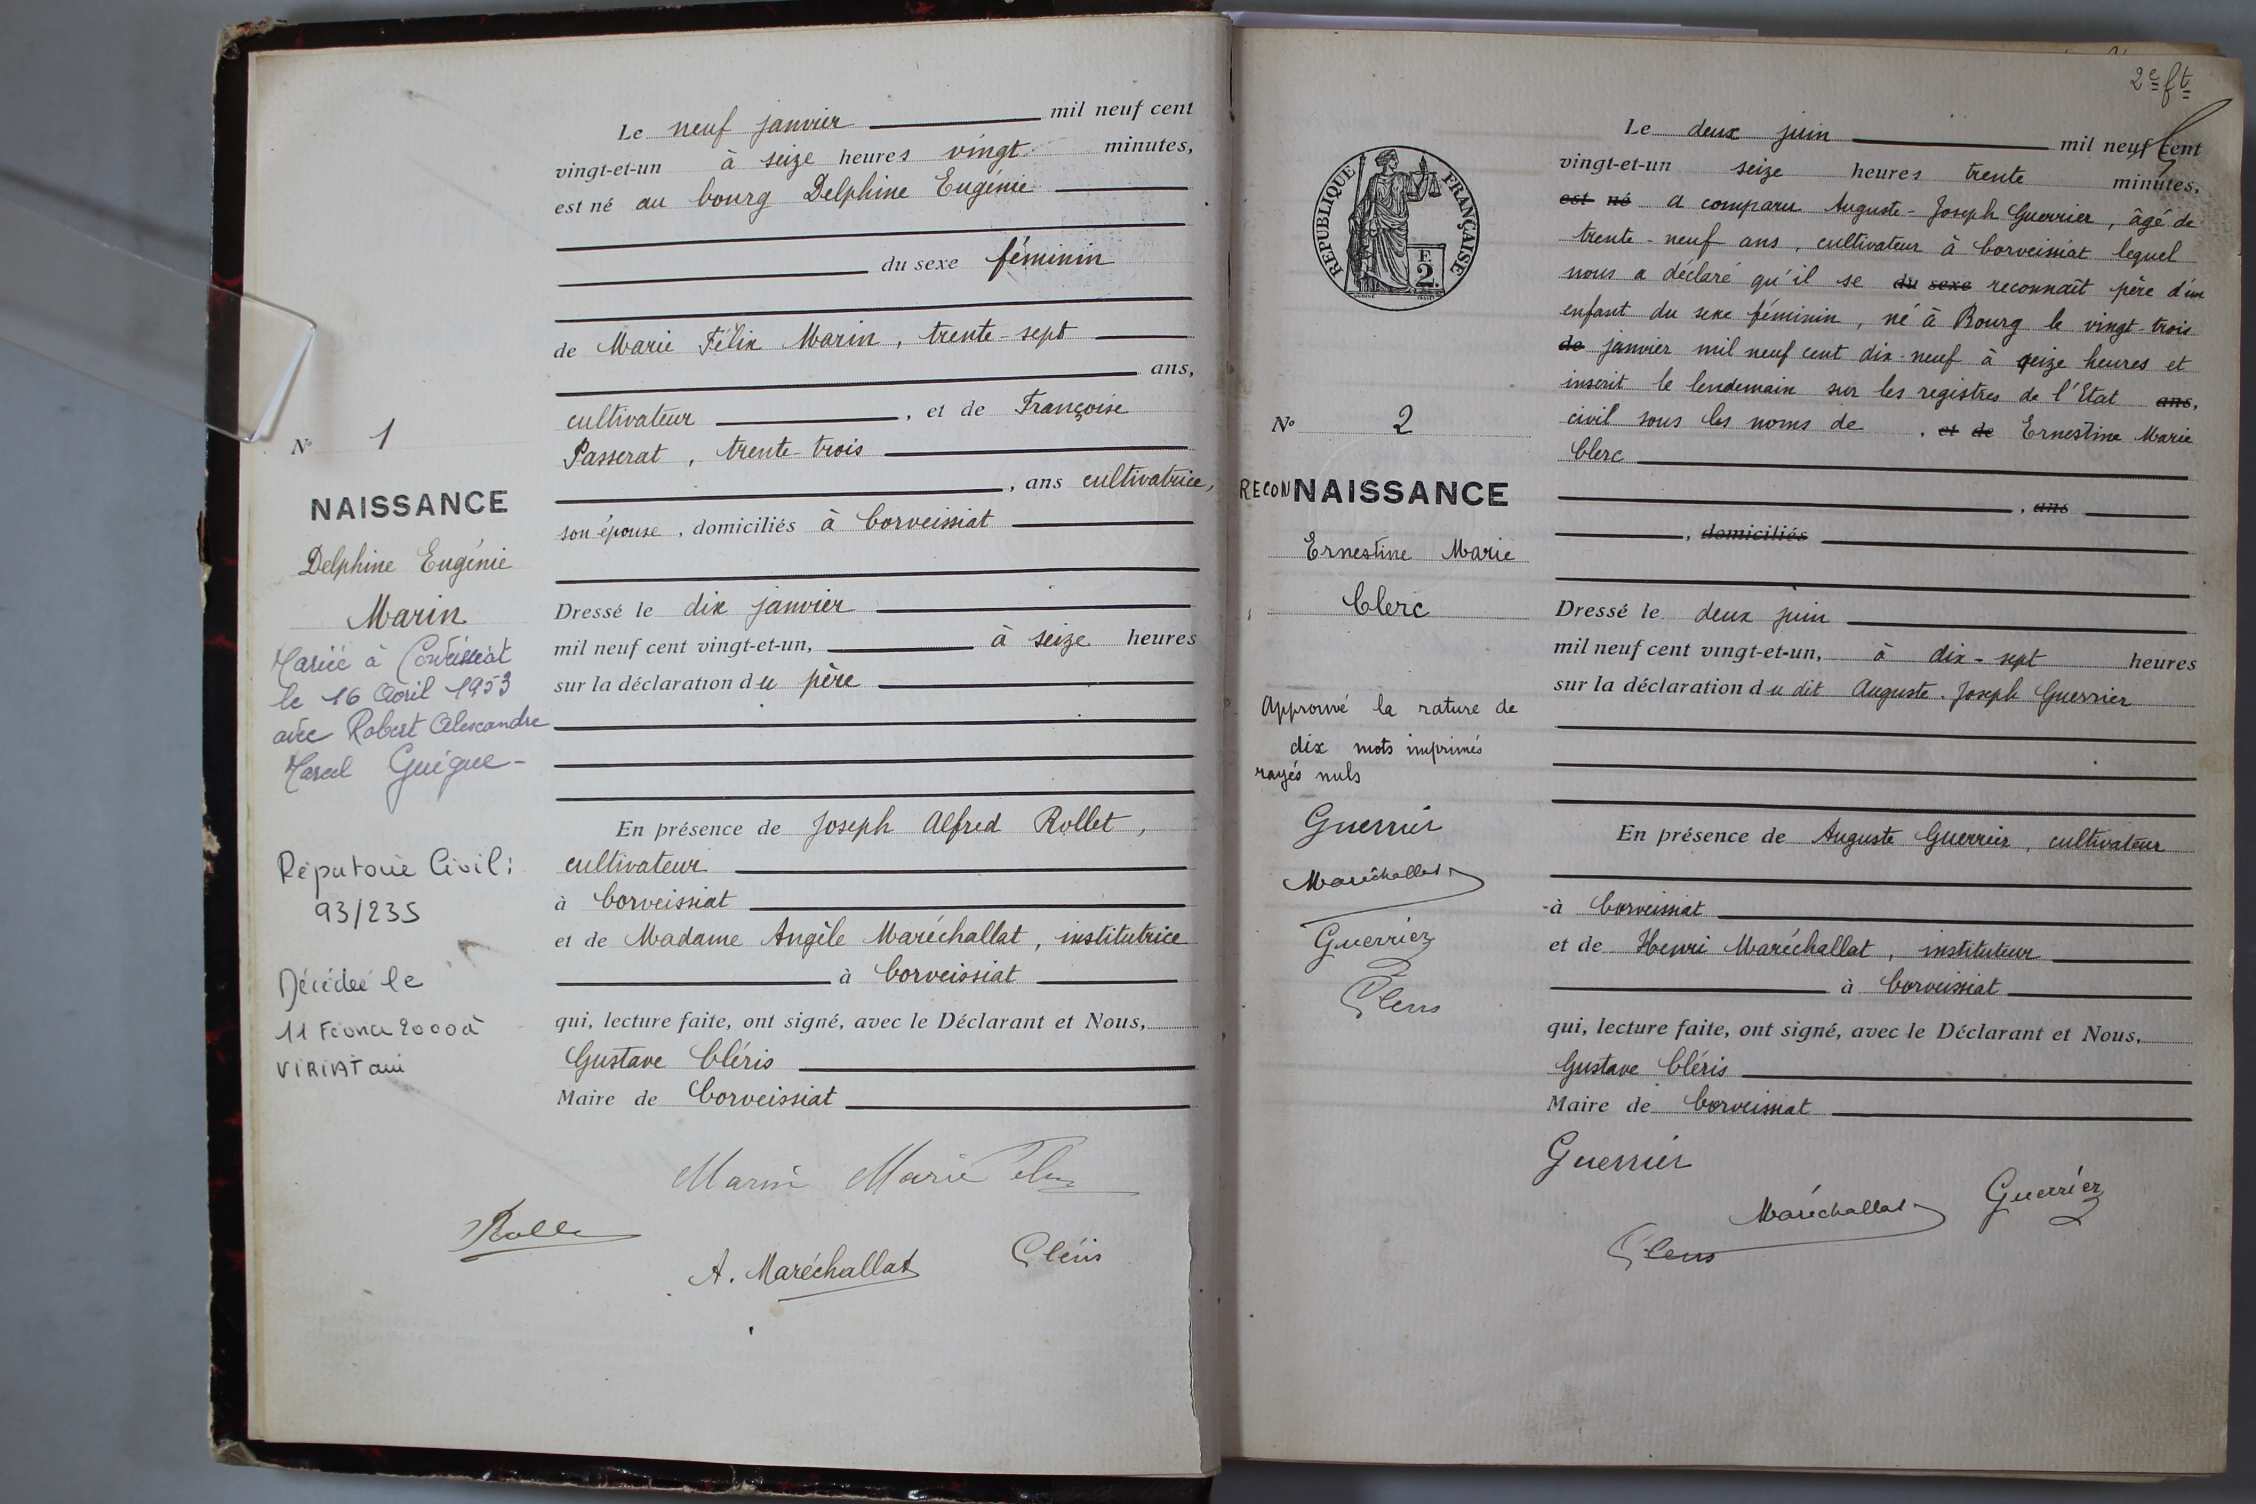 Le neuf janvier mil neuf cent
vingt-et-un à seize heures vingt minutes,
est né au bourg Delphine Eugénie
du sexe féminin
de Marie Félix Marin, trente-sept
ans,
cultivateur, et de Françoise
Passerat, trente-trois
, ans cultivatrice,
son épouse, domiciliés à Corveissiat
Dressé le dix janvier
mil neuf cent vingt-et-un, à seize heures
sur la déclaration du père
En présence de Joseph Alfred Rollet,
cultivateur
à Corveissiat
et de Madame Angèle Maréchallat, institutrice
à Corveissiat
qui, lecture faite, ont signé, avec le Déclarant et Nous,
Gustave Cléris
Maire de Corveissiat
Marin Marie
A. Maréchallat Cléris
N° 1
NAISSANCE
Delphine Eugénie
Marin
Mariée à Corveissiat
le 16 Avril 1953
avec Robert Alexandre
Marcel Guigue -
Répertoire Civil :
93/235
Décédée le
11 Février 2000 à
VIRIAT
2e ft
Le deux juin mil neuf cent
vingt-et-un seize heures trente minutes,
est né a comparu Auguste-Joseph Guerrier, âgé de
trente-neuf ans, cultivateur à Corveissiat lequel
nous a déclaré qu'il se du sexe reconnaît père d'un
enfant du sexe féminin, né à Bourg le vingt-trois
de janvier mil neuf cent dix-neuf à heures et
inscrit le lendemain sur les registres de l'Etat ans,
civil sous les noms de , et de Ernestine Marie
Clerc
, ans
, domiciliés
Dressé le deux juin
mil neuf cent vingt-et-un, à dix-sept heures
sur la déclaration du dit Auguste-Joseph Guerrier
En présence de Auguste Guerrier, cultivateur
à Corveissiat
et de Henri Maréchallat, instituteur
à Corveissiat
qui, lecture faite, ont signé, avec le Déclarant et Nous,
Gustave Cléris
Maire de Corveissiat
Guerrier
Maréchallat Guerrier
Cléris
REPUBLIQUE FRANÇAISE
F.
2.
N° 2
RECONNAISSANCE
Ernestine Marie
Clerc
Approuvé la rature de
dix mots imprimés
rayés nuls
Guerrier
Maréchallat
Guerrier
Cléris